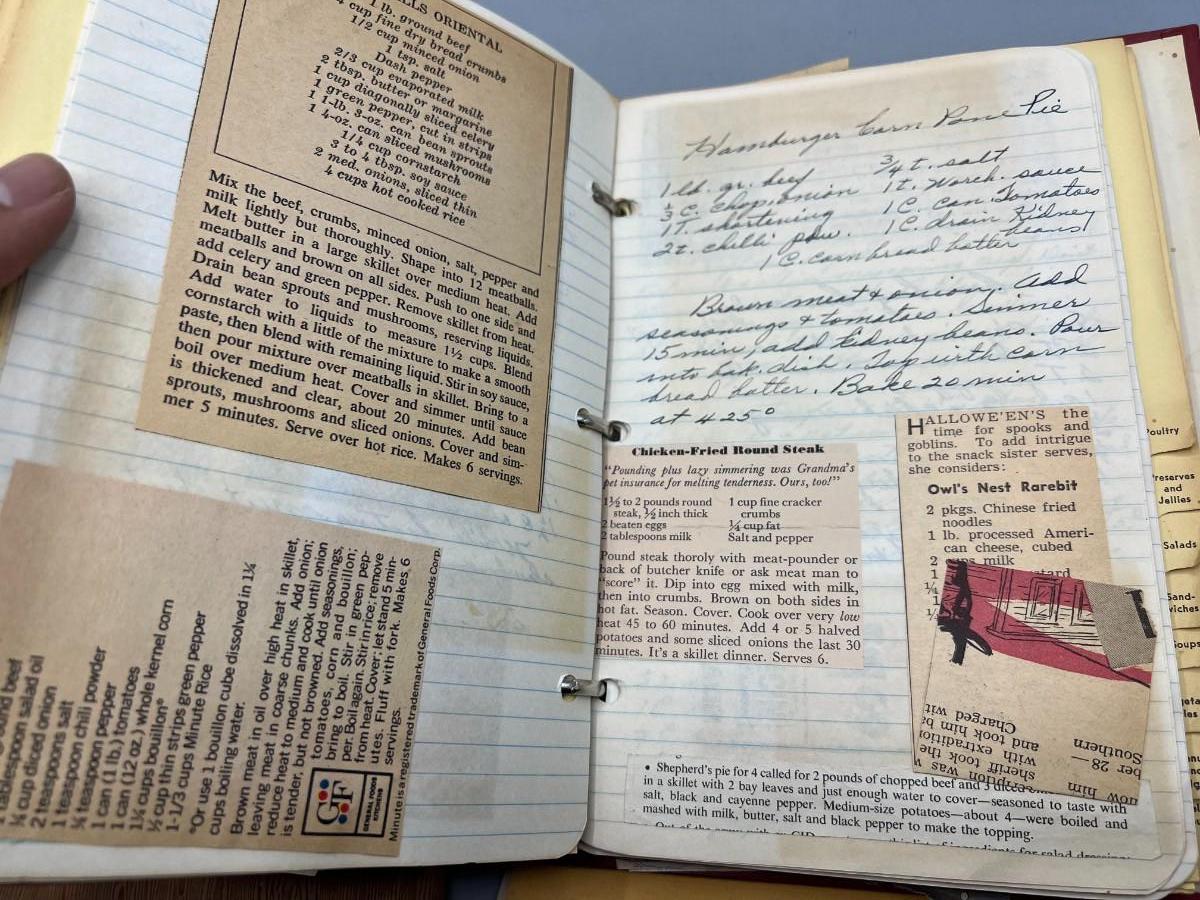 LLS ORIENTAL
1 lb. ground beef
cup fine dry bread crumbs
1/2 cup minced onion
1 tsp. salt
Dash pepper
2/3 cup evaporated milk
2 tbsp. butter or margarine
1 cup diagonally sliced celery
1 green pepper, cut in strips
1 1-lb. 3-oz. can bean sprouts
4-oz. can sliced mushrooms
1/4 cup cornstarch
3 to 4 tbsp. soy sauce
2 med. onions, sliced thin
4 cups hot cooked rice
Mix the beef, crumbs, minced onion, salt, pepper and
milk lightly but thoroughly. Shape into 12 meatballs.
Melt butter in a large skillet over medium heat. Add
meatballs and brown on all sides. Push to one side and
add celery and green pepper. Remove skillet from heat.
Drain bean sprouts and mushrooms, reserving liquids.
Add water to liquids to measure 1½ cups. Blend
cornstarch with a little of the mixture to make a smooth
paste, then blend with remaining liquid. Stir in soy sauce,
then pour mixture over meatballs in skillet. Bring to a
boil over medium heat. Cover and simmer until sauce
is thickened and clear, about 20 minutes. Add bean
sprouts, mushrooms and sliced onions. Cover and sim-
mer 5 minutes. Serve over hot rice. Makes 6 servings.
ound beef
1 tablespoon salad oil
¾ cup diced onion
2 teaspoons salt
1 teaspoon chili powder
¼ teaspoon pepper
1 can (1 lb.) tomatoes
1 can (12 oz.) whole kernel corn
1¼ cups bouillon*
½ cup thin strips green pepper
1-1/3 cups Minute Rice
*Or use 1 bouillon cube dissolved in 1¼
cups boiling water.
Brown meat in oil over high heat in skillet,
leaving meat in coarse chunks. Add onion;
reduce heat to medium and cook until onion
is tender, but not browned. Add seasonings,
tomatoes, corn and bouillon;
bring to boil. Stir in green pep-
per. Boil again. Stir in rice; remove
from heat. Cover; let stand 5 min-
utes. Fluff with fork. Makes 6
servings.
GF
GENERAL FOODS
KITCHENS
Minute is a registered trademark of General Foods Corp.
Hamburger Corn Pone Pie
1 lb. gr. beef ¾ t. salt
⅓ C. chop. onion 1 t. Worch. sauce
1 T. shortening 1 C. can Tomatoes
2 t. chilli pow. 1 C. drain Kidney
beans
1 C. corn bread batter
Brown meat & onion. Add
seasonings & tomatoes. Simmer
15 min, add Kidney beans. Pour
into bak. dish. Top with corn
bread batter. Bake 20 min
at 425°
Chicken-Fried Round Steak
"Pounding plus lazy simmering was Grandma's
pet insurance for melting tenderness. Ours, too!"
1½ to 2 pounds round
steak, ½ inch thick
2 beaten eggs
2 tablespoons milk
1 cup fine cracker
crumbs
¼ cup fat
Salt and pepper
Pound steak thoroly with meat-pounder or
back of butcher knife or ask meat man to
"score" it. Dip into egg mixed with milk,
then into crumbs. Brown on both sides in
hot fat. Season. Cover. Cook over very low
heat 45 to 60 minutes. Add 4 or 5 halved
potatoes and some sliced onions the last 30
minutes. It's a skillet dinner. Serves 6.
HALLOWE'EN'S the
time for spooks and
goblins. To add intrigue
to the snack sister serves,
she considers:
Owl's Nest Rarebit
2 pkgs. Chinese fried
noodles
1 lb. processed Ameri-
can cheese, cubed
2 milk
1
¼
1
¼
now
ception was
sheriff took the
with extradition
and took him b
Charged wit
ber 28
Southern
• Shepherd's pie for 4 called for 2 pounds of chopped beef and 3
in a skillet with 2 bay leaves and just enough water to cover—seasoned to taste with
salt, black and cayenne pepper. Medium-size potatoes—about 4—were boiled and
mashed with milk, butter, salt and black pepper to make the topping.
Poultry
Preserves
and
Jellies
Salads
Sand-
wiches
Soups